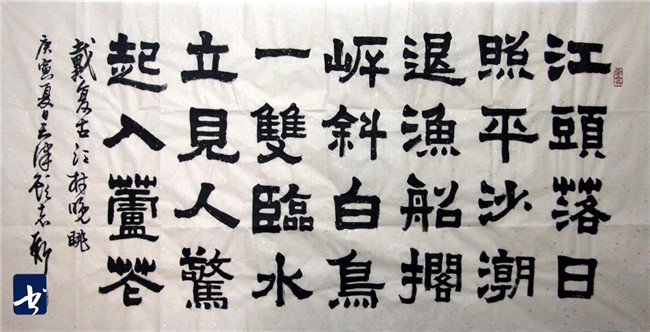 江頭落日
照平沙潮
退漁船擱
岸斜白鳥
一雙臨水
立見人驚
起入蘆花
戴复古江村晚眺
庚寅夏日天津顾志新
书